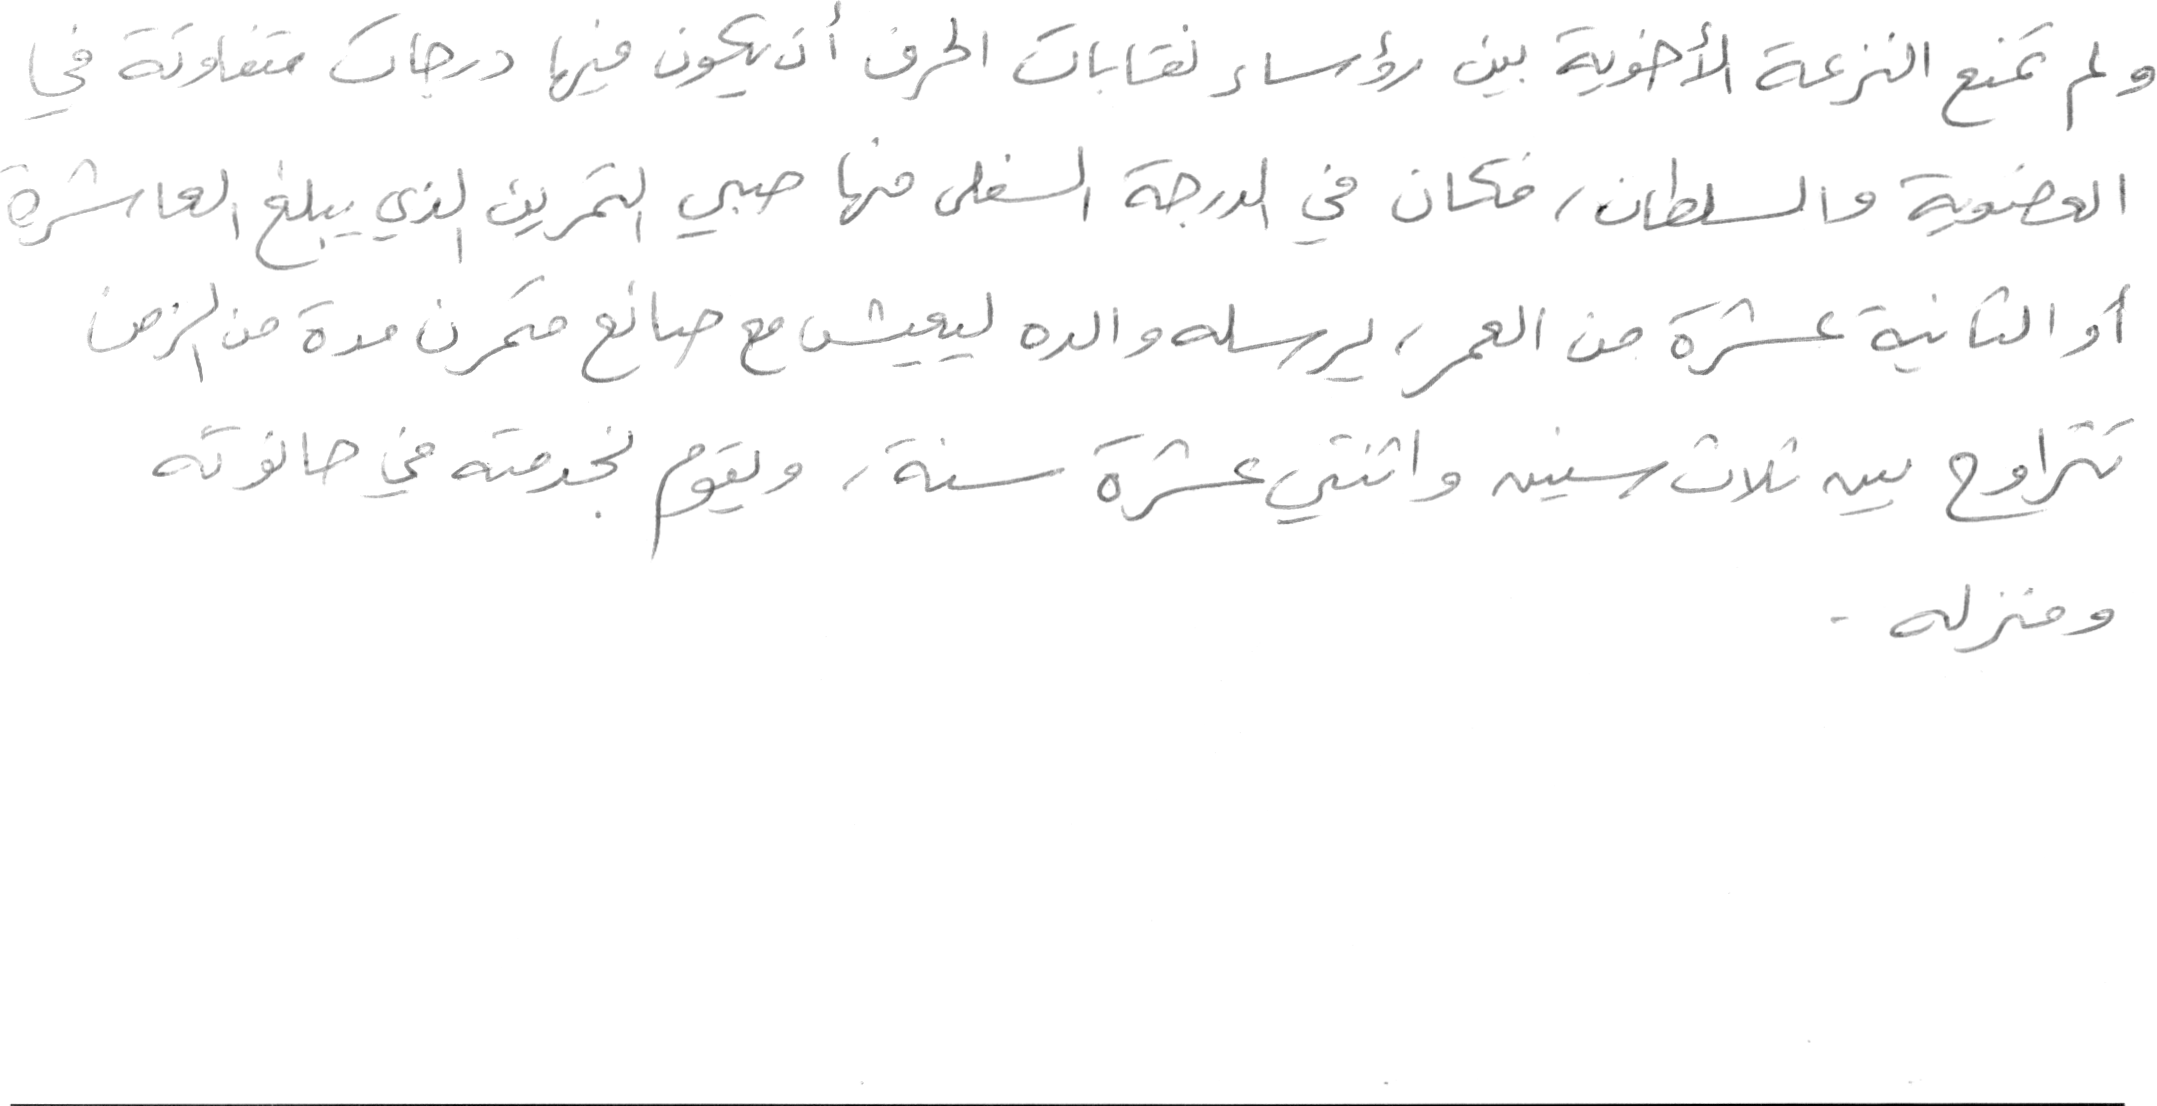 ولم تمنع النزعة الأخوية بين رؤساء نقابات الحرف أن يكون فيها درجات متفاوتة في
العضوية والسلطان، فكان في الدرجة السفلى منها صبي التمرين الذي يبلغ العاشرة
أو الثانية عشرة من العمر، يرسله والده ليعيش مع صانع متمرن مدة من الزمن
تتراوح بين ثلاث سنين واثنتي عشرة سنة، ويقوم بخدمته في حانوته
ومنزله .